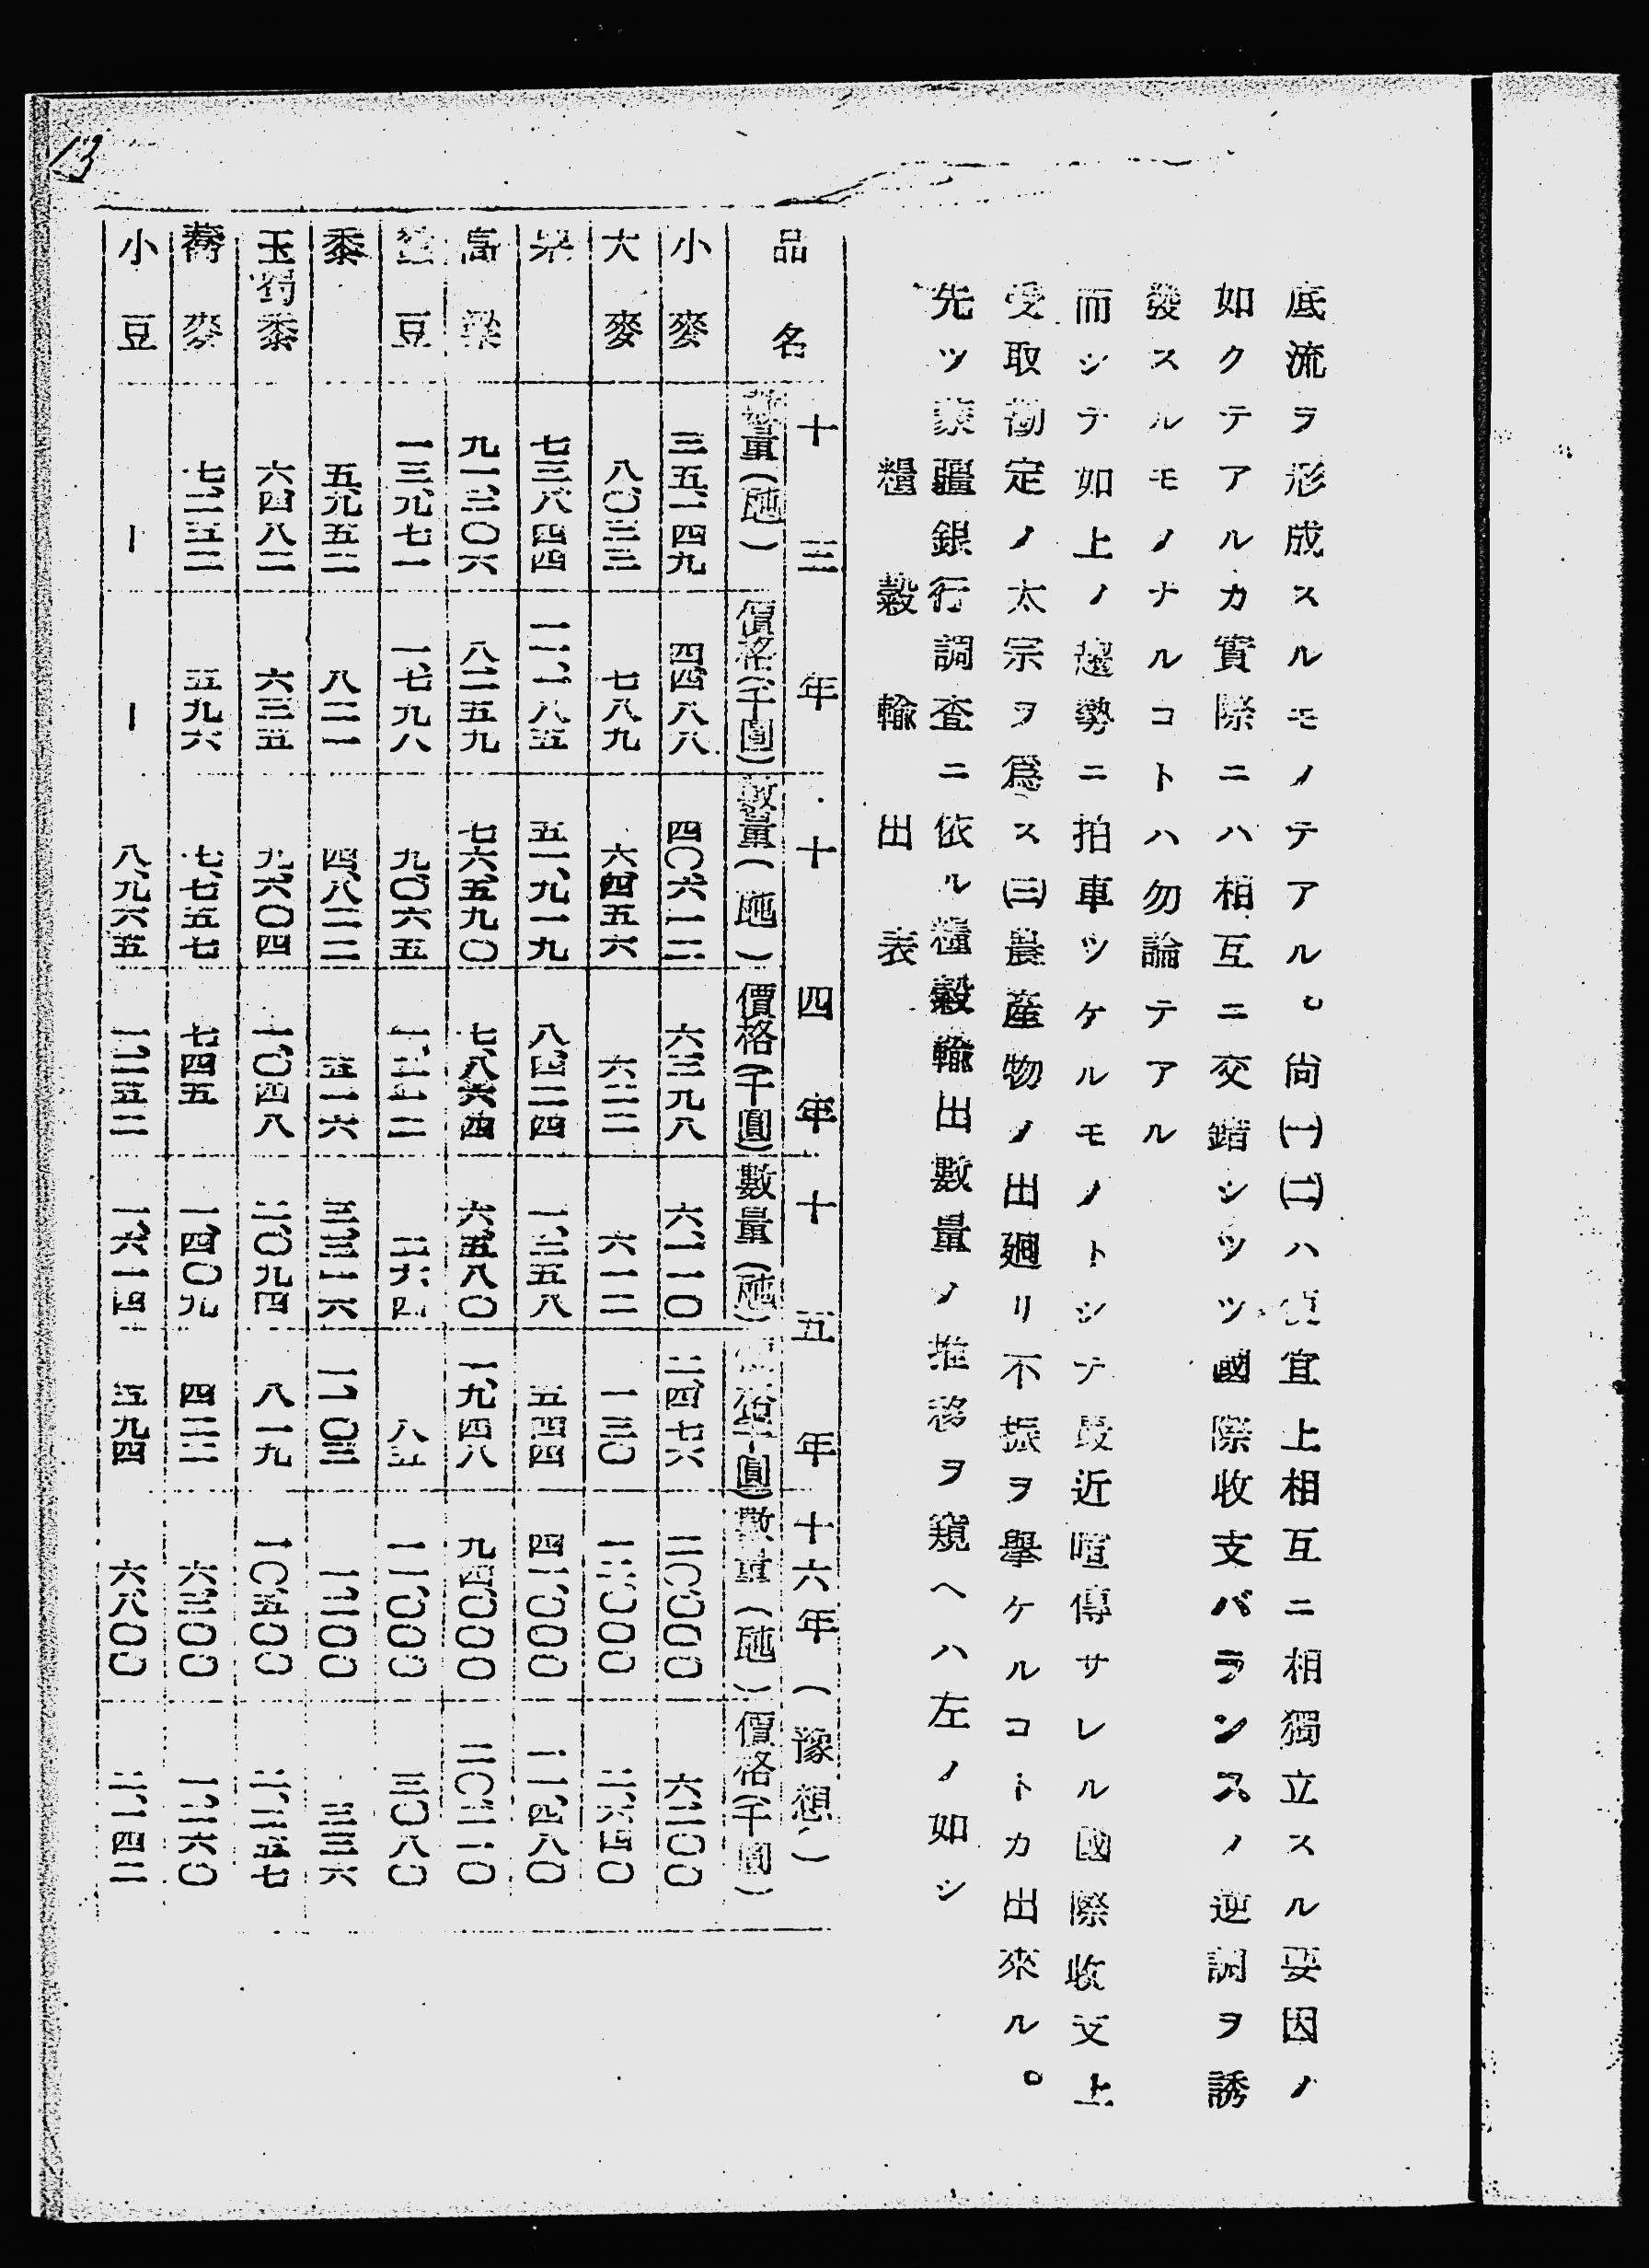 底流ヲ形成スルモノテアル。尚(一)(二)ハ便宜上相互ニ相獨立スル要因ノ
如クテアルカ實際ニハ相互ニ交錯シツツ國際收支バランスノ逆調ヲ誘
發スルモノナルコトハ勿論テアル
而シテ如上ノ趨勢ニ拍車ツケルモノトシテ最近喧傳サレル國際收支上
受取勘定ノ太宗ヲ爲ス(三)農産物ノ出廻リ不振ヲ擧ケルコトカ出來ル。
先ツ蒙疆銀行調査ニ依ル糧穀輸出數量ノ推移ヲ窺ヘハ左ノ如シ
糧穀輸出表
品名 十三年 十四年 十五年 十六年(豫想)
數量(瓲) 價格(千圓) 數量(瓲) 價格(千圓) 數量(瓲) 價格(千圓) 數量(瓲) 價格(千圓)
小麥 三五、一四九 四四八八 四〇、六一二 六、三九八 六、一一〇 二、四七六 二〇、〇〇〇 六、二〇〇
大麥 八、〇三三 七八九 六、四五六 六二二 六一二 一三〇 一二、〇〇〇 二、六四〇
粟 七三、八四四 一一、一八五 五一、九一九 八、四二四 一、三五八 五四四 四一、〇〇〇 一一、四八〇
高粱 九一、三〇六 八二五九 七六、五九〇 七、八六四 六、五八〇 一、九四八 九四、〇〇〇 二〇、二一〇
豆 一三、九七一 一、七九八 九、〇六五 二六四 八五 一一、〇〇〇 三、〇八〇
黍 五、九五二 八二一 四、八二二 五一六 三、三一六 一、一〇三 一、二〇〇 三三六
玉蜀黍 六四八二 六三五 九、六〇四 一、〇四八 二、〇九四 八一九 一〇、五〇〇 二、三五七
蕎麥 七、二五二 五九六 七、七五七 七四五 一、四〇九 四二二 六、三〇〇 一、二六〇
小豆 ー ー 八、九六五 一、二五二 一、六一四 五九四 六、八〇〇 二、一四二
13